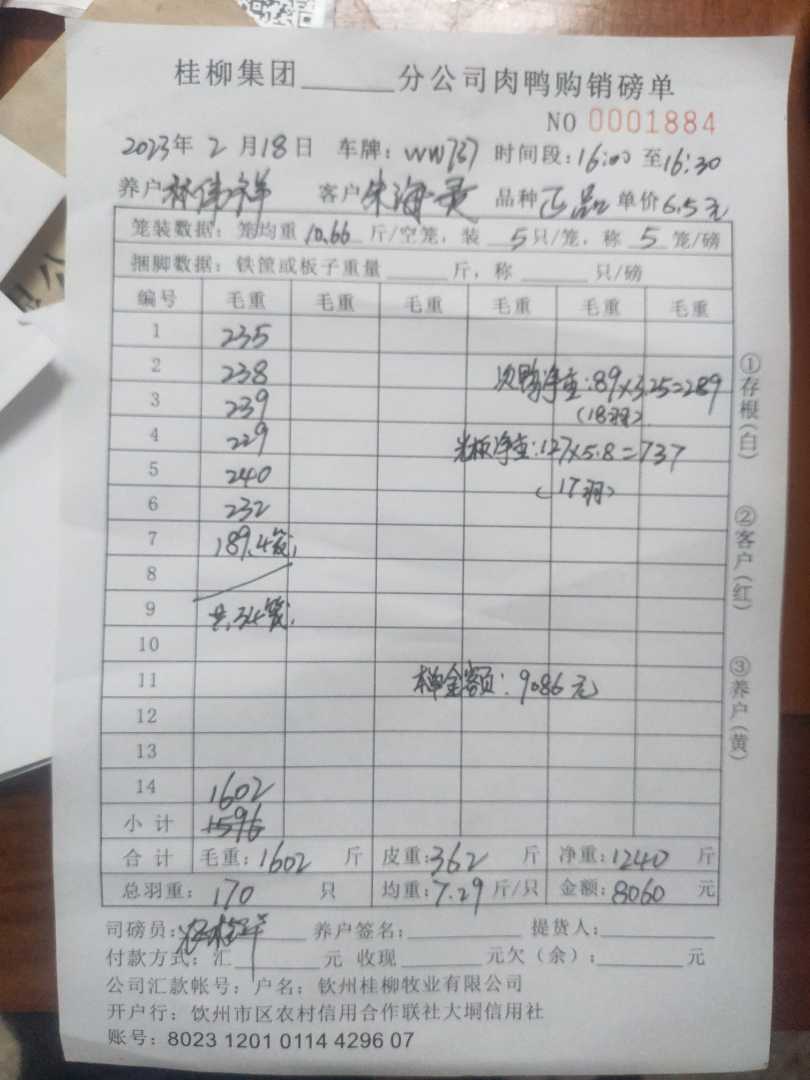 桂柳集团______分公司肉鸭购销磅单
NO 0001884
2023年 2 月18日 车牌: WW737 时间段:16:00 至16:30
养户 林伟祥 客户 朱海 品种 正品 单价6.5元
笼装数据: 笼均重 10.66 斤/空笼, 装 5 只/笼, 称 5 笼/磅
捆脚数据: 铁筐或板子重量______斤, 称______只/磅
编号 毛重 毛重 毛重 毛重 毛重 毛重
1 235
2 238 次鸭净重:89×3.25=289
3 239 (18羽)
4 229 光板净重:127×5.8=737
5 240 (17羽)
6 232
7 189.4笼
8
9 共34笼
10
11 本单金额: 9086元
12
13
14 1602
小 计 1596
合 计 毛重:1602 斤 皮重:362 斤 净重:1240 斤
总羽重: 170 只 均重:7.29 斤/只 金额:8060 元
司磅员: 养户签名: 提货人:
付款方式: 汇______元 收现______元欠(余):______元
公司汇款帐号: 户名: 钦州桂柳牧业有限公司
开户行: 钦州市区农村信用合作联社大垌信用社
账号: 8023 1201 0114 4296 07
①存根(白)
②客户(红)
③养户(黄)